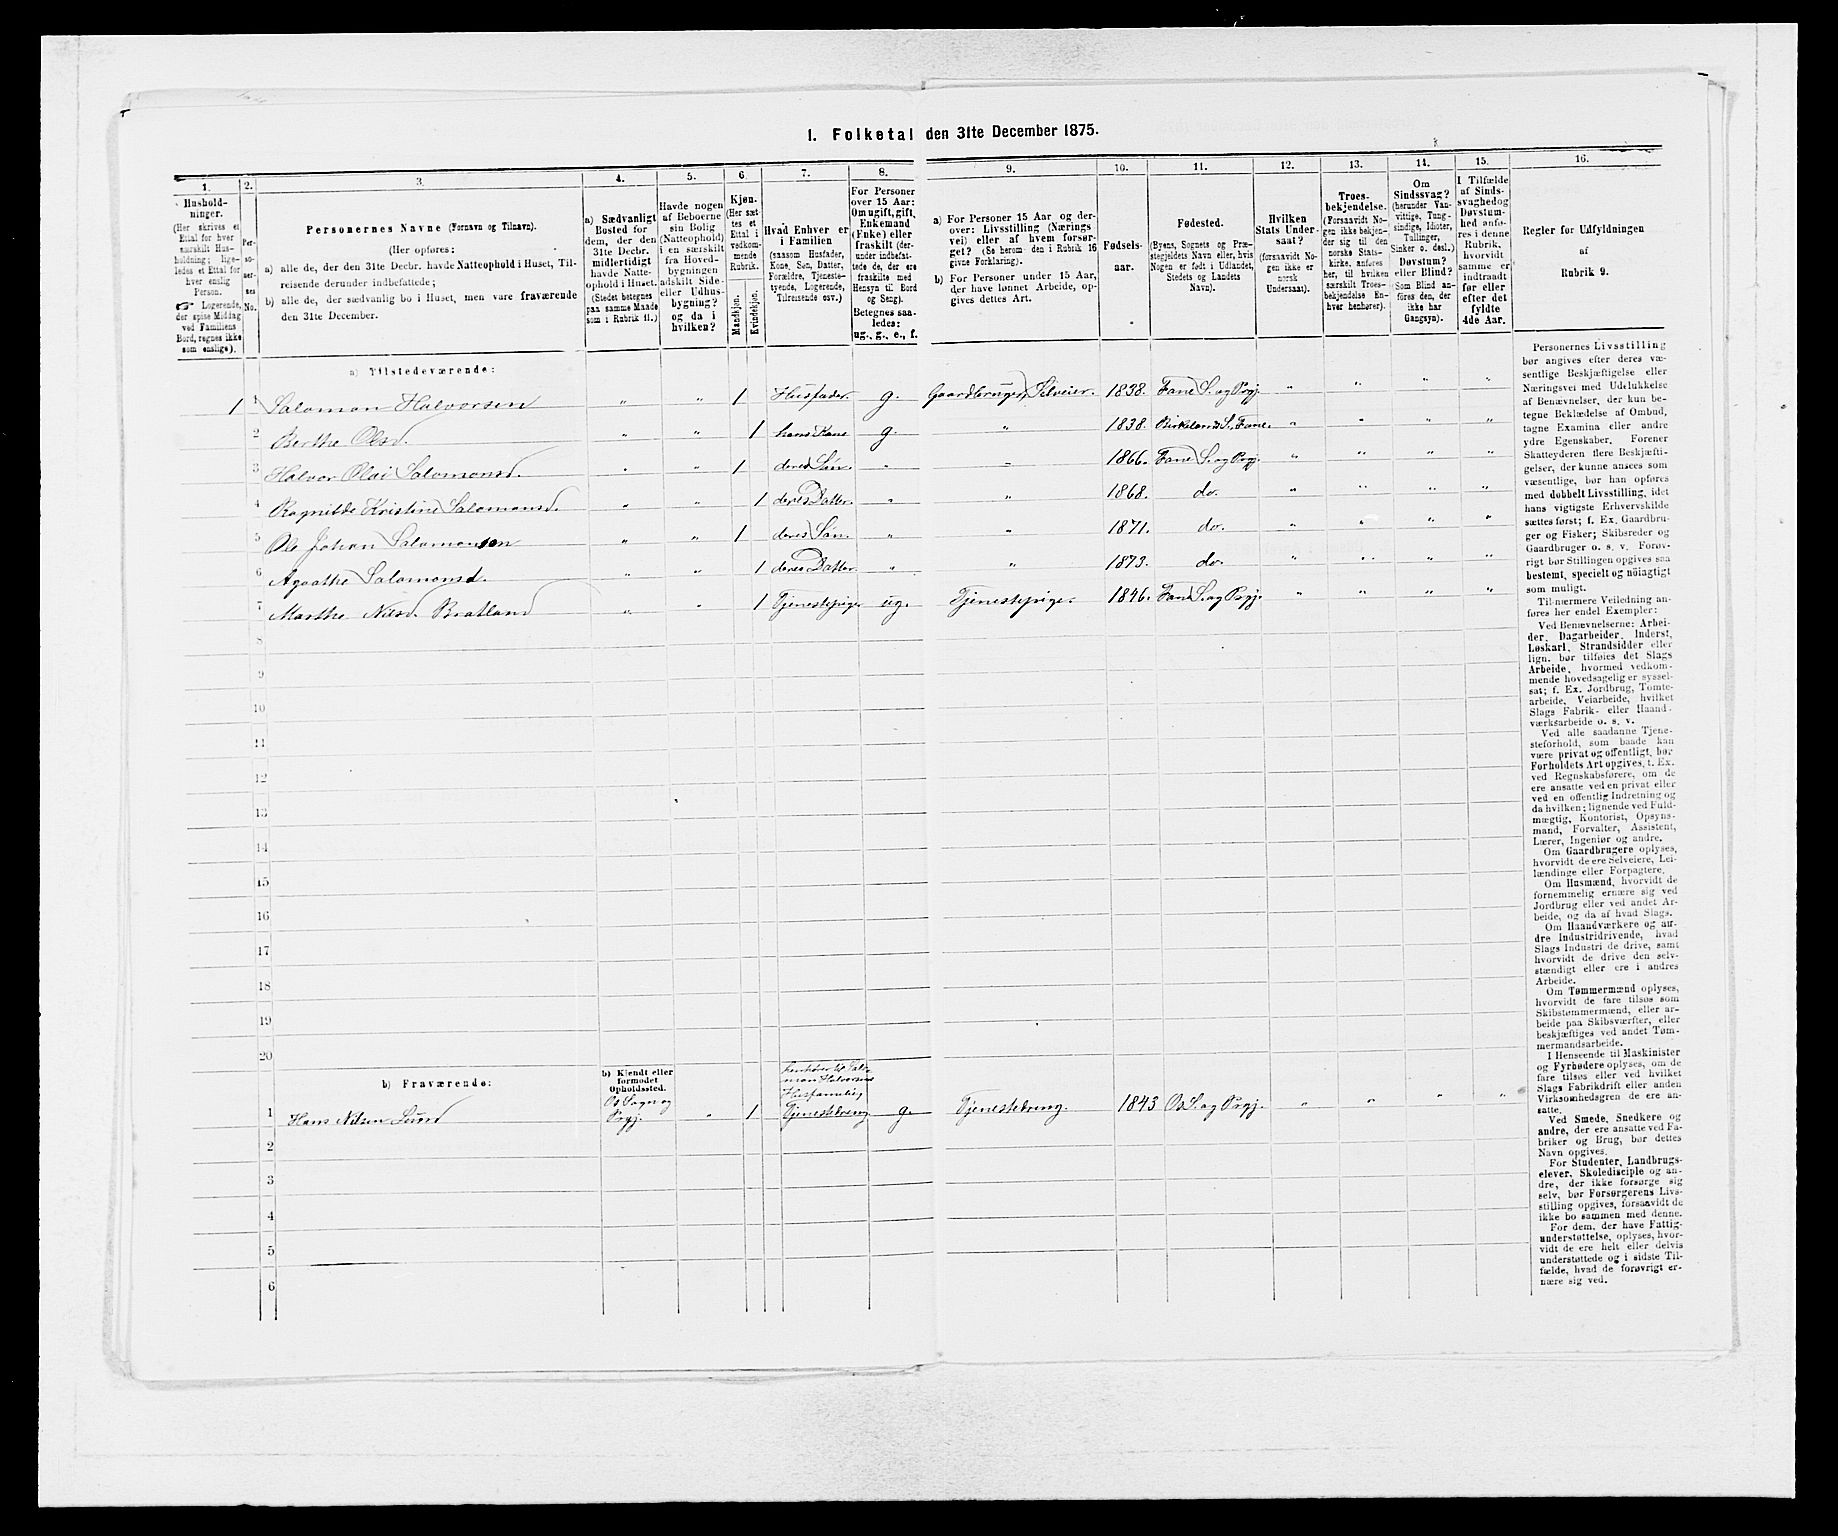 1. Folketal den 31te December 1875.
1. 2. 3. 4. 5. 6. 7. 8. 9. 10. 11. 12. 13. 14. 15. 16.
Hushold-
ninger.
(Her skrives et
Ettal for hver
særskilt Hus-
holdning; lige-
ledes et Ettal for
hver enslig
Person.
☞ Logerende,
der spise Middag
ved Familiens
Bord, regnes ikke
som enslige).
Per-
so-
ner-
nes
No.
Personernes Navne (Fornavn og Tilnavn).
(Her opføres:
a) alle de, der den 31te Decbr. havde Natteophold i Huset, Til-
reisende derunder indbefattede;
b) alle de, der sædvanlig bo i Huset, men vare fraværende
den 31te December.
a) Sædvanligt
Bosted for
dem, der den
31te Decbr.
midlertidigt
havde Natte-
ophold i Huset.
(Stedet betegnes
paa samme Maade
som i Rubrik 11.)
Havde nogen
af Beboerne
sin Bolig
(Natteophold)
i en særskilt
fra Hoved-
bygningen
adskilt Side-
eller Udhus-
bygning?
og da i
hvilken?
Kjøn.
(Her sæt-
tes et
Ettal i
vedkom-
mende
Rubrik.
Mandkjøn.
Kvindekjøn.
Hvad Enhver er
i Familien
(saasom Husfader,
Kone, Søn, Datter,
Forældre, Tjeneste-
tyende, Logerende,
Tilreisende osv.)
For Personer
over 15 Aar:
Om ugift, gift,
Enkemand
(Enke) eller
fraskilt (der-
under indbefat-
tede de, der ere
fraskilte med
Hensyn til Bord
og Seng).
Betegnes saa-
ledes:
ug., g., e., f.
a) For Personer 15 Aar og der-
over: Livsstilling (Nærings-
vei) eller af hvem forsør-
get? (Se herom den i Rubrik 16
givne Forklaring).
b) For Personer under 15 Aar,
der have lønnet Arbeide, op-
gives dettes Art.
Fødsels-
aar.
Fødested.
(Byens, Sognets og Præ-
stegjeldets Navn eller, hvis
Nogen er født i Udlandet,
Stedets og Landets
Navn).
Hvilken
Stats Under-
saat?
(forsaavidt No-
gen ikke er
norsk
Undersaat).
Troes-
bekjendelse.
(Forsaavidt No-
gen ikke bekjen-
der sig til den
norske Stats-
kirke, anføres
her, til hvilken
særskilt Troes-
bekjendelse En-
hver henhører).
Om
Sindssvag?
(herunder Van-
vittige, Tung-
sindige, Idioter,
Tullinger,
Sinker o. desl.)
Døvstum?
eller Blind?
(Som Blind an-
føres den, der
ikke har
Gangsyn).
I Tilfælde
af Sinds-
svaghed og
Døvstum-
hed anfø-
res i denne
Rubrik,
hvorvidt
samme er
indtraadt
før eller
efter det
fyldte
4de Aar.
Regler for Udfyldningen
af
Rubrik 9.
a) Tilstedeværende:
1 1 Salomon Halvorsen " " 1 Husfader. g. Gaardbruger, Selveier. 1838. Fane S. og Prgj. " " " "
2 Berthe Olsd. " " 1 hans Kone g. " 1838. Birkelands S. Fane. " " " "
3 Halvor Olai Salomons. " " 1 deres Søn. " " 1866. Fane S. og Prgj. " " " "
4 Ragnilde Kristine Salomonsd. " " 1 deres Datter. " " 1868. do. " " " "
5 Ole Johan Salomonsen " " 1 deres Søn. " " 1871. do. " " " "
6 Agathe Salomonsd. " " 1 deres Datter. " " 1873. do. " " " "
7 Marthe Nilsd. Bratland " " 1 Tjenestepige. ug. Tjenestepige. 1846. Fane S. og Prgj. " " " "
8
9
10
11
12
13
14
15
16
17
18
19
20
b) Fraværende:
b) Kjendt eller
formodet
Opholdssted.
henhører til Salo-
mon Halvorsens
Husfamilie,
1 Hans Nilsen Lund Os Sogn og Prgj. " 1 Tjenestedreng g. Tjenestedreng. 1843 Os S. og Prgj. " " " "
2
3
4
5
6
Personernes Livsstilling
bør angives efter deres væ-
sentlige Beskjæftigelse eller
Næringsvei med Udelukkelse
af Benævnelser, der kun be-
tegne Beklædelse af Ombud,
tagne Examina eller andre
ydre Egenskaber. Forener
Skatteyderen flere Beskjæfti-
gelser, der kunne ansees som
væsentlige, bør han opføres
med dobbelt Livsstilling, idet
hans vigtigste Erhvervskilde
sættes først; f. Ex. Gaardbru-
ger og Fisker; Skibsreder og
Gaardbruger o. s. v. Forøv-
rigt bør Stillingen opgives saa
bestemt, specielt og nöiagtigt
som muligt.
Til nærmere Veiledning an-
føres her endel Exempler:
Ved Benævnelserne: Arbei-
der, Dagarbeider, Inderst,
Løskarl, Strandsidder eller
lign. bør tilføies det Slags
Arbeide, hvormed vedkom-
mende hovedsagelig er syssel-
sat; f. Ex. Jordbrug, Tomte-
arbeide, Veiarbeide, hvilket
Slags Fabrik- eller Haand-
værksarbeide o. s. v.
Ved alle saadanne Tjene-
steforhold, som baade kan
være privat og offentligt, bør
Forholdets Art opgives, f. Ex.
ved Regnskabsførere, om de
ere ansatte ved en privat eller
ved en offentlig Indretning og
da hvilken; lignende ved Fuld-
mægtig, Kontorist, Opsyns-
mand, Forvalter, Assistent,
Lærer, Ingeniør og andre.
Om Gaardbrugere oplyses,
hvorvidt de ere Selveiere, Lei-
lændinge eller Forpagtere.
Om Husmænd, hvorvidt de
fornemmelig ernære sig ved
Jordbrug eller ved andet Ar-
beide, og da af hvad Slags.
Om Haandværkere og an-
dre Industridrivende, hvad
Slags Industri de drive, samt
hvorvidt de drive den selv-
stændigt eller ere i andres
Arbeide.
Om Tømmermænd oplyses,
hvorvidt de fare tilsøs som
Skibstømmermænd, eller ar-
beide paa Skibsværfter, eller
beskjæftiges ved andet Tøm-
mermandsarbeide.
I Henseende til Maskinister
og Fyrbødere oplyses, om de
fare tilsøs eller ved hvilket
Slags Fabrikdrift eller anden
Virksomhedsgren de ere an-
satte.
Ved Smede, Snedkere og
andre, der ere ansatte ved Fa-
briker og Brug, bør dettes
Navn opgives.
For Studenter, Landbrugs-
elever, Skoledisciple og an-
dre, der ikke forsørge sig
selv, bør Forsørgerens Livs-
stilling opgives, forsaavidt de
ikke bo sammen med denne.
For dem, der have Fattig-
understøttelse, oplyses, hvor-
vidt de ere helt eller delvis
understøttede og i sidste Til-
fælde, hvad de forøvrigt er-
nære sig ved.